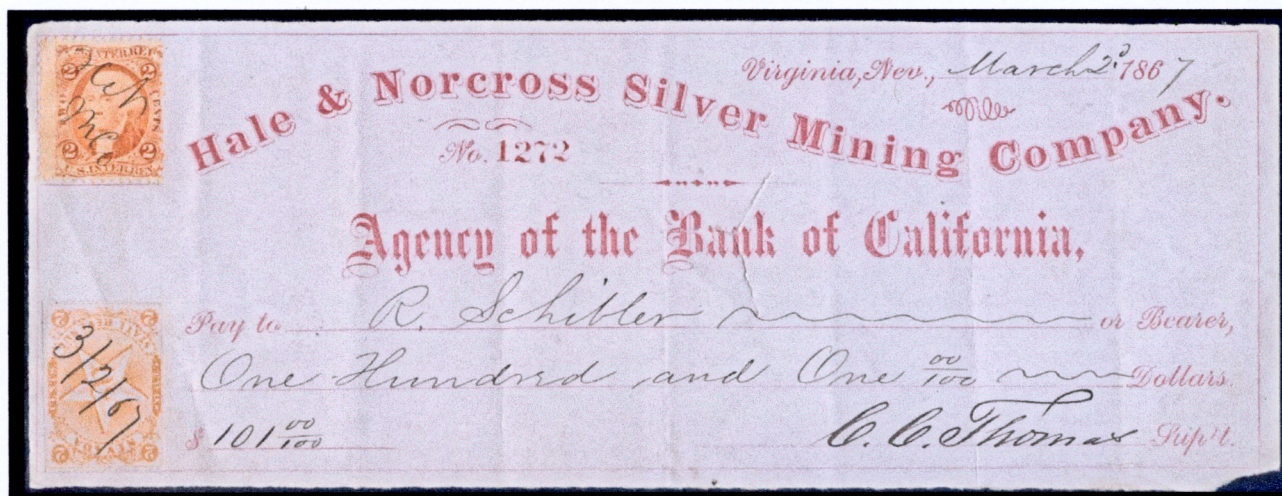 Virginia, Nev., March 2d 1867
Hale & Norcross Silver Mining Company.
No. 1272
Agency of the Bank of California,
Pay to R. Schibler or Bearer,
One Hundred and One 00/100 Dollars.
$ 101 00/100 C. C. Thomas Sup't.
U.S. INTER. REV.
2 2
CENTS
2 2
U.S. INTER. REV.
2 2
3/2/67
NEVADA
2 2